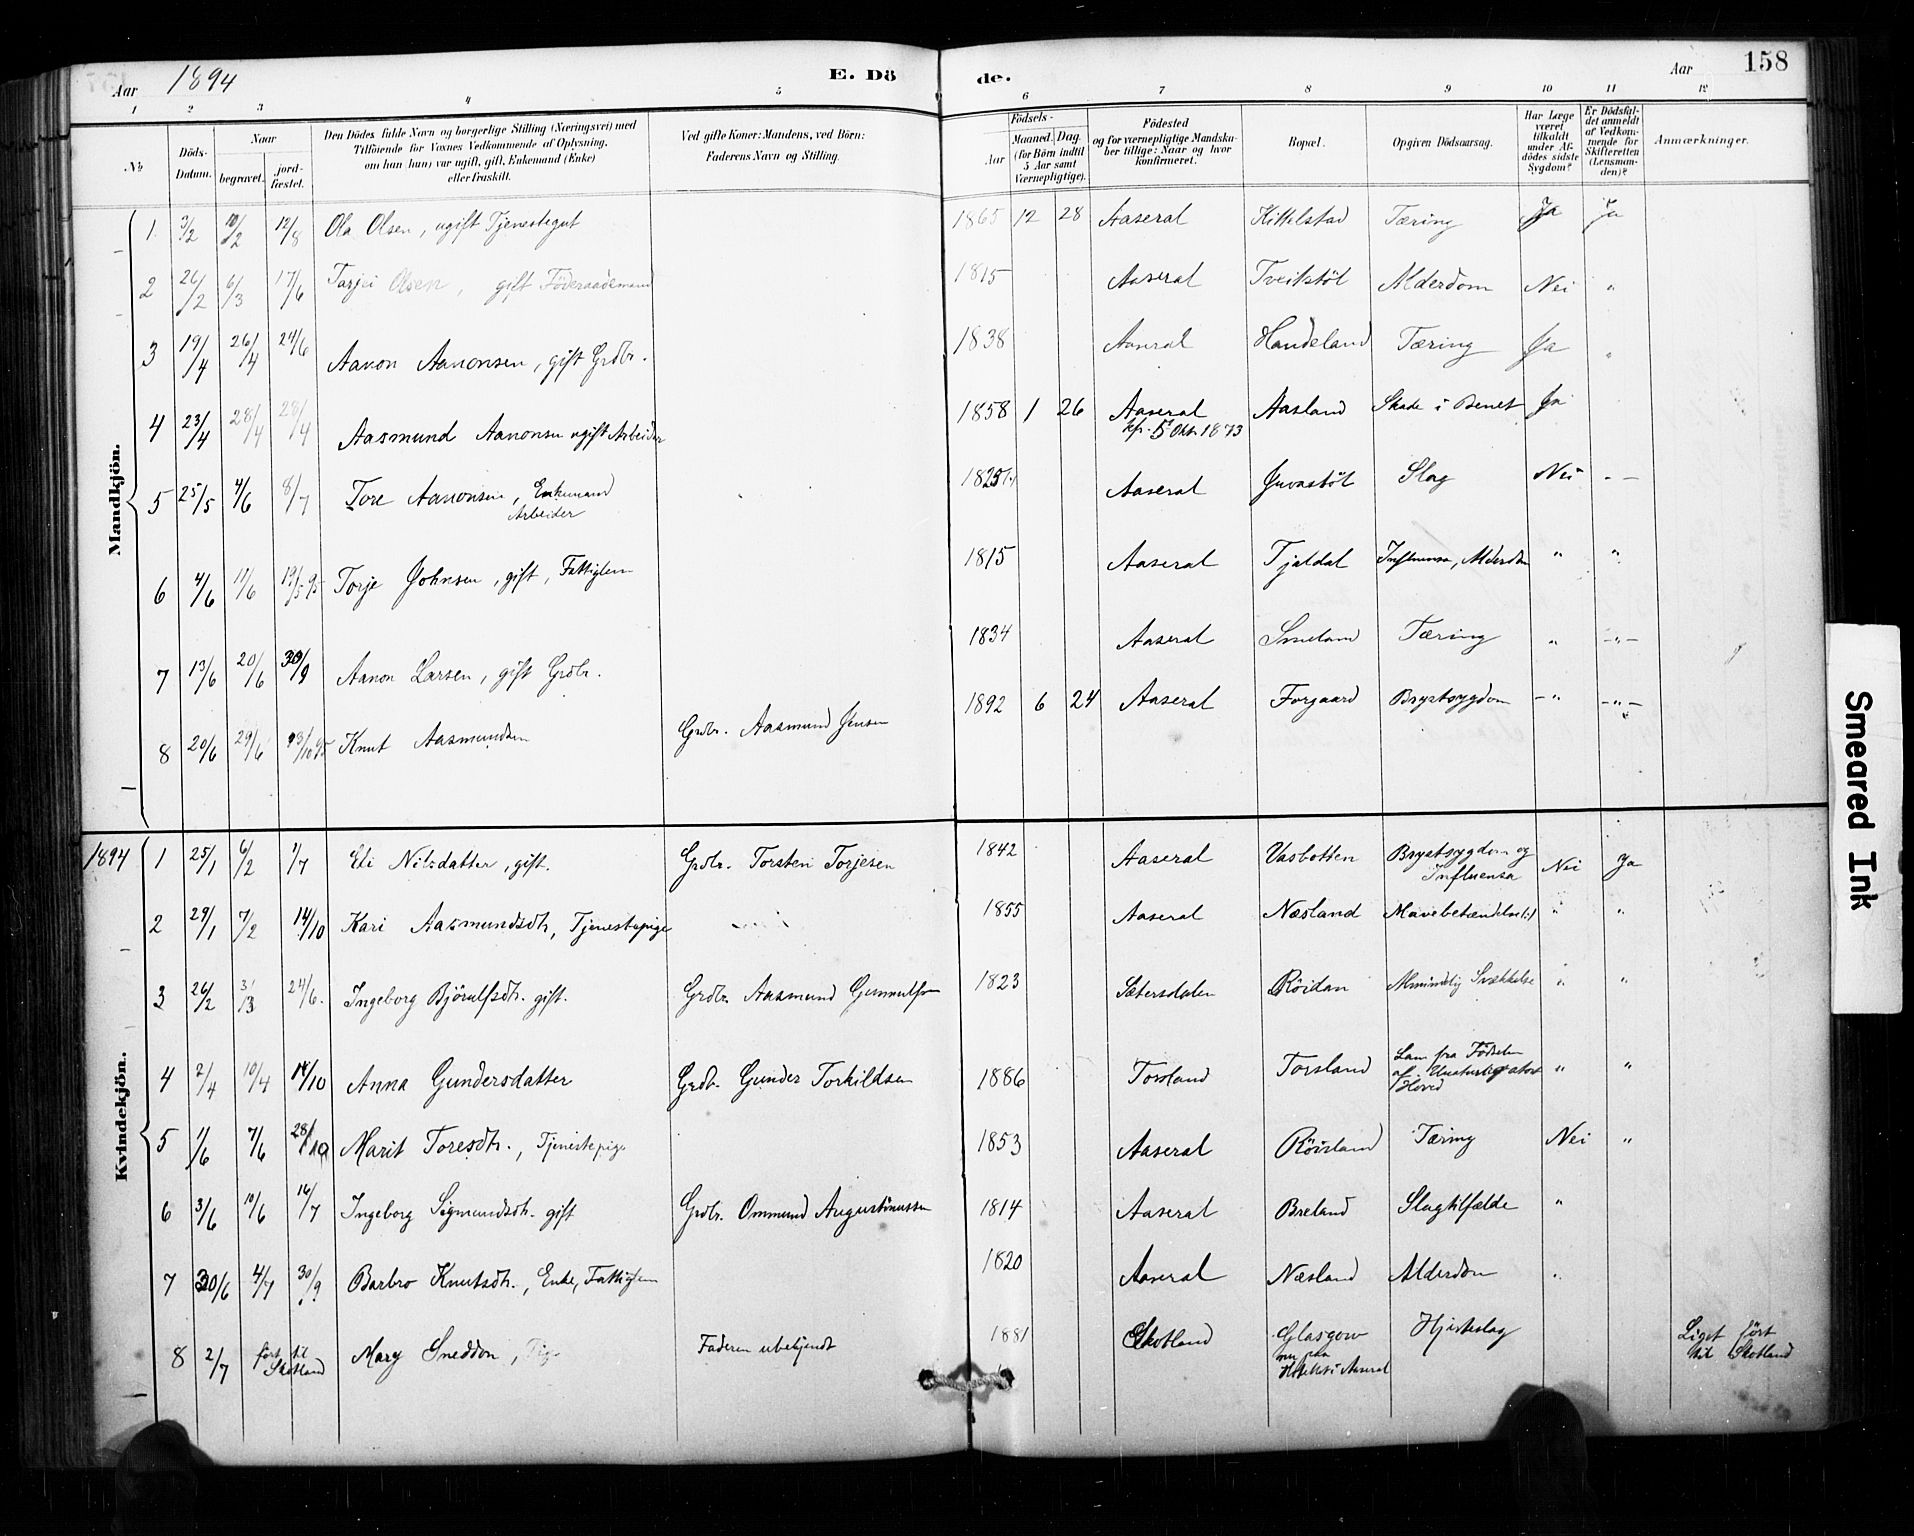 Aar 1894 E. Dö de. Aar 158
1 2 3 4 5 6 7 8 9 10 11 12
No Döds-Datum. Naar begravet. jord-fæstet. Den Dödes fulde Navn og borgerlige Stilling (Næringsvei) med Tilföiende for Voxnes Vedkommende af Oplysning, om han (hun) var ugift, gift, Enkemand (Enke) eller fraskilt. Ved gifte Koner: Mandens, ved Börn: Faderens Navn og Stilling. Födsels- Aar Maaned. Dag. (for Börn indtil 5 Aar samt Værnepligtige). Födested og for værnepligtige Mandska-ber tillige: Naar og hvor konfirmeret. Bopæl. Opgiven Dödsaarsag. Har Læge været tilkaldt under Af-dödes sidste Sygdom? Er Dödsfal-det anmeldt af Vedkom-mende for Skifteretten (Lensman-den)? Anmærkninger.
Mandkjön.
1. 3/2 10/2 12/8 Ola Olsen, ugift Tjenestegut 1865 12 28 Aaseral Kittelstad Tæring Ja Ja
2 26/2 6/3 17/6 Tarjei Olsen, gift Föderaadsmand 1815 Aaseral Tveitstöl Alderdom Nei "
3 19/4 26/4 24/6 Aanon Aanonsen, gift Grdbr. 1838 Aaseral Handeland Tæring Ja "
4 23/4 28/4 28/4 Aasmund Aanonsen ugift Arbeider 1858 1 26 Aaseral kfr. 5 Okt. 1873 Aasland Skade i Benet Ja
5 25/5 4/6 8/7 Tore Aanonsen, Enkemand Arbeider 1825 Aaseral Juvastöl Slag Nei - -
6 4/6 11/6 19/5 95 Torje Johnsen, gift, Fattiglem 1815 Aaseral Tjaldal Influensa, Alderdom " "
7 13/6 20/6 30/9 Aanon Larsen, gift Grdbr. 1834 Aaseral Smeland Tæring " -"-
8 20/6 29/6 Knut Aasmundsen Grdbr. Aasmund Jensen 1892 6 24 Aaseral Forgaard Brystsygdom -" -"-
Kvindekjön.
1894 1 25/1 6/2 1/7 Eli Nilsdatter, gift. Grdbr. Torsten Torjesen 1842 Aaseral Vasbotten Brystsygdom og Influensa Nei Ja
2 29/1 7/2 14/10 Kari Aasmundsdtr, Tjenestepige 1855 Aaseral Næsland Mavebetændelse " "
3 26/2 3/3 24/6. Ingeborg Björulfsdtr. gift. Grdbr. Aasmund Gunnulfsen 1823 Sætersdalen Röidan Almindelig Svækkelse " "
4 2/4 10/4 14/10 Anna Gundersdatter Grdbr. Gunder Torkildsen 1886 Torsland Torsland Lam fra Födselen af. Unaturligt stort Hoved " "
5 1/6 7/6 28/10 Marit Toresdtr., Tjenestepige 1853 Aaseral Röisland Tæring Nei "
6 3/6 10/6 16/7 Ingeborg Sigmundsdtr. gift Grdbr. Ommund Augustinussen 1814 Aaseral Breland Slagtilfælde "
7 30/6 4/7 30/9 Barbro Knutsdtr., Enke, Fattiglem 1820 Aaseral Næsland Alderdom "
8 2/7 fört til Skotland Mary Sneddon, Pige Faderen ubekjendt 1881 Skotland Glasgow nu paa Hotellet i Aaseral Hjerteslag Liget fört til Skotland
Smeared Ink